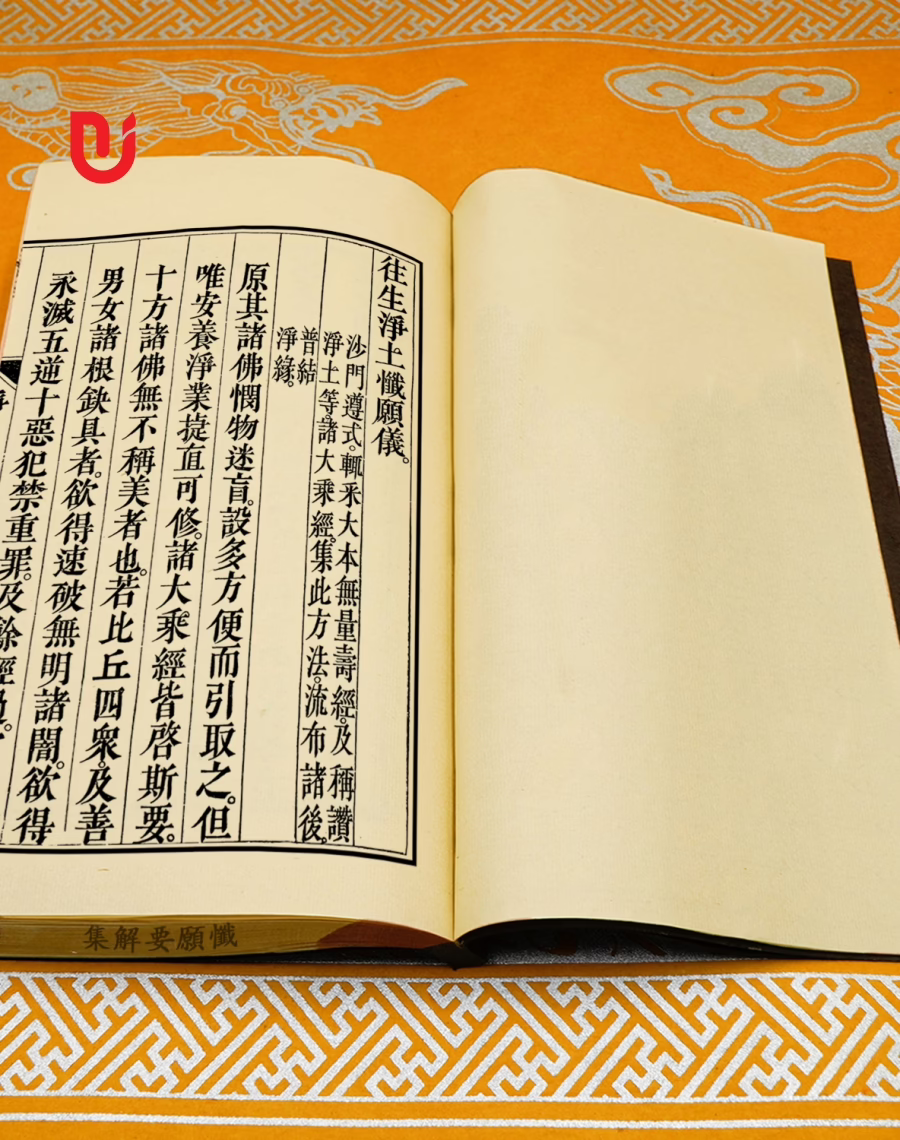 往生淨土懺願儀。
沙門遵式。輒釆大本無量壽經。及稱讚
淨土等。諸大乘經。集此方法。流布諸後。
普結
淨緣。
原其諸佛憫物迷盲。設多方便而引取之。但
唯安養淨業捷直可修。諸大乘經皆啓斯要。
十方諸佛無不稱美者也。若比丘四衆。及善
男女諸根缺具者。欲得速破無明諸闇。欲得
永滅五逆十惡犯禁重罪。及餘
懺願要解集